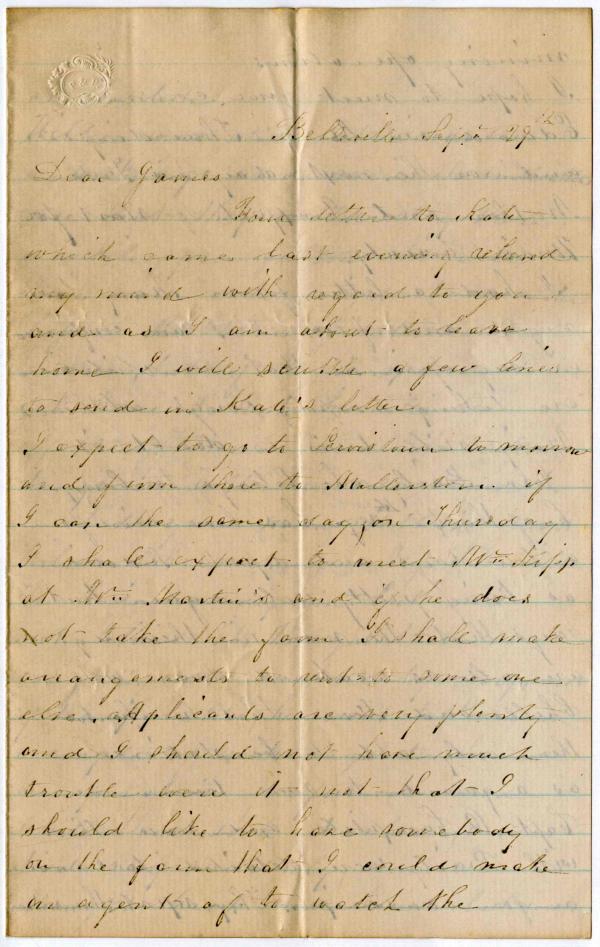 Belleville Sept 29th
Dear James
Your letter to Kate
which came last evening relieved
my mind with regard to you
and as I am about to leave
home I will scribble a few lines
to send in Kate's letter
I expect to go to Lewistown to morrow
and from there to Millerstown if
I can the same day, on Thursday
I shall expect to meet Wm Kipp
at Wm Martin's and if he does
not take the farm I shall make
arrangements to rent to some one
else. Aplicants are very plenty
and I should not have much
trouble were it not that I
should like to have somebody
on the farm that I could make
an agent of to watch the